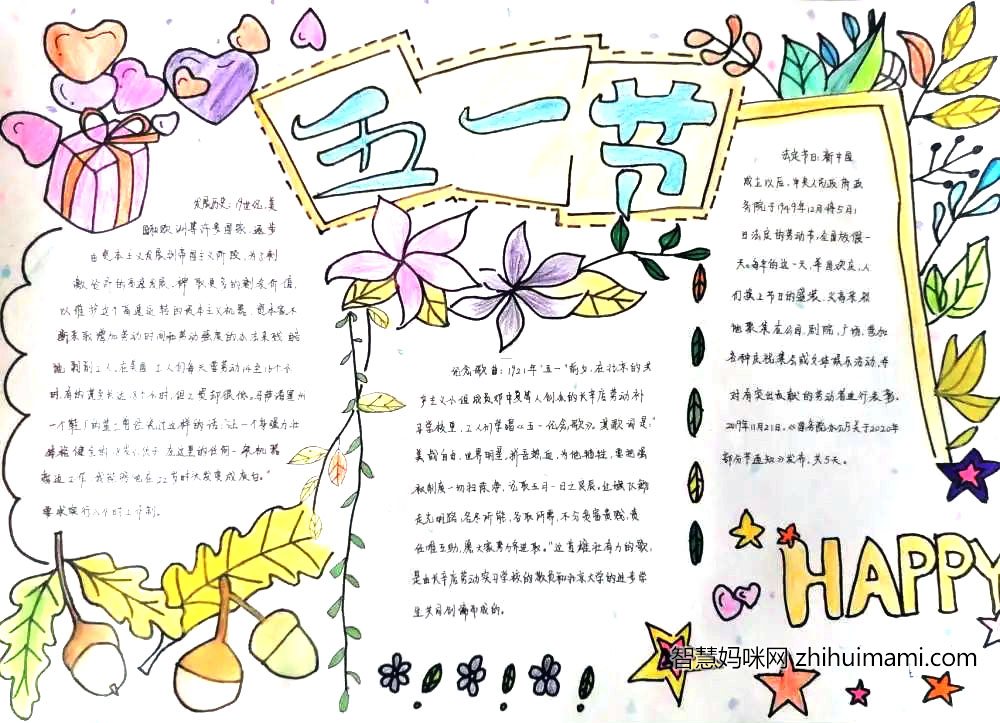 五一节
发展历史:19世纪,美
国和欧洲某许多国家,逐步
由资本主义发展到帝国主义阶段,为了刺
激经济的高速发展,榨取更多的剩余价值,
以维护这个高速运转的资本主义机器,资本家不
断采取增加劳动时间和劳动强度的办法来残酷
地剥削工人,在美国,工人们每天要劳动14至16个小
时,有的甚至长达18个小时,但工资却很低。马萨诸塞州
一个鞋厂的监工曾经说过这样的话:"让一个身强力壮
体格健全的18岁小伙子,在这里的任何一架机器
旁边工作,我能够使他在22岁时头发变成灰白。"
要求实行八小时工作制。
纪念歌曲:1921年"五一"前夕,在北京的共
产主义小组成员邓中夏等人创办的长辛店劳动补
习学校里,工人们学唱《五一纪念歌》。其歌词是:"
美哉自由,世界明星,拼吾热血,为他牺牲,要把强
权制度一切扫除净,记取五月一日之良辰。红旗飞舞
走光明路,各尽所能,各取所需,不分贫富贵贱,责
任唯互助,愿大家努力齐进取。"这首雄壮有力的歌,
是由长辛店劳动实习学校的教员和北京大学的进步学
生共同创编而成的。
法定节日:新中国
成立以后,中央人民政府政
务院于1949年12月将5月1
日法定的劳动节,全国放假一
天。每年的这一天,举国欢庆,人
们换上节日的盛装,兴高采烈
地聚集在公园,剧院,广场,参加
各种庆祝集会或文体娱乐活动,并
对有突出贡献的劳动者进行表彰。
2019年11月21日,《国务院办公厅关于2020年
部分节通知》发布,共5天。
HAPPY
智慧妈咪网 zhihuimami.com